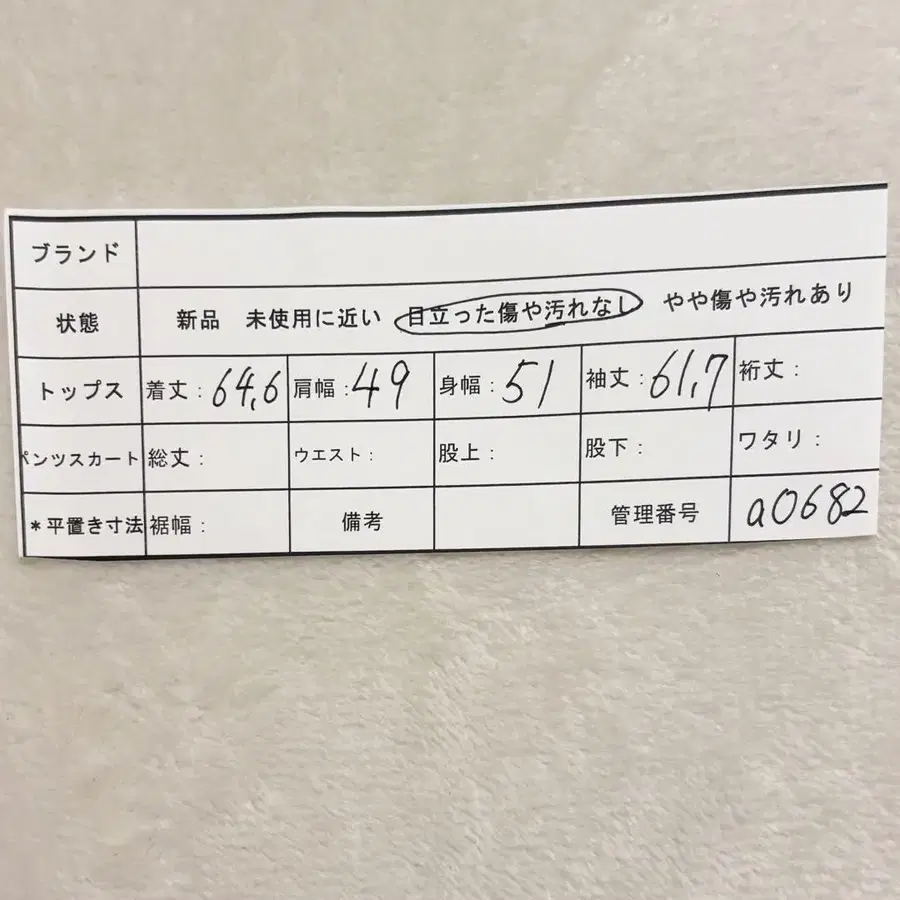 ブランド
状態 新品 未使用に近い 目立った傷や汚れなし やや傷や汚れあり
トップス 着丈：64,6 肩幅：49 身幅：51 袖丈：61,7 裄丈：
パンツスカート 総丈： ウエスト： 股上： 股下： ワタリ：
＊平置き寸法 裾幅： 備考 管理番号 a0682